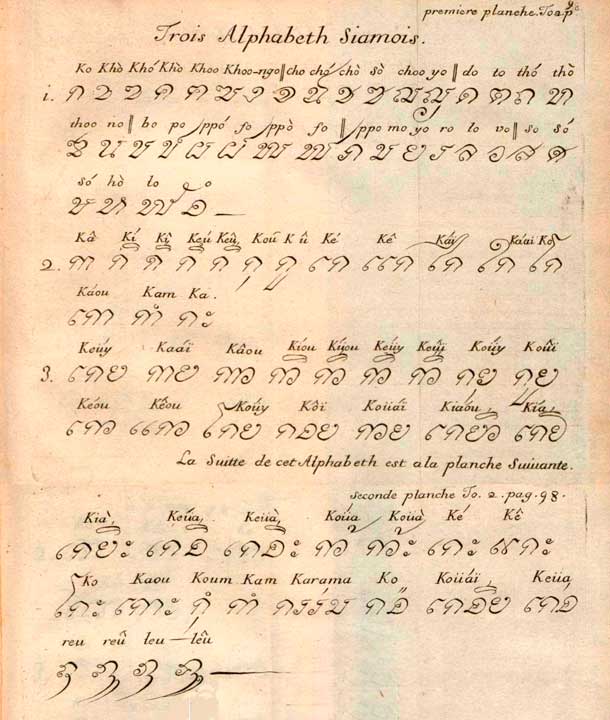 premiere planche. To 2 p.
Trois Alphabeth Siamois.
Ko Khò Khó Khò Khoo Khoo-ngo cho chó chò sò choo yo do to thó thò
1. ก ข ฃ ค ฅ ฆ ง จ ฉ ช ซ ฌ ญ ด ต ถ ท
thoo no bo po ppó fo ppò fo ppo mo yo ro lo vo so só
ธ น บ ป ผ ฝ พ ฟ ภ ม ย ร ล ว ส ศ
só hò lo ò
ษ ห ฬ อ
Kâ Kí Kì Keú Keû Koú K û Ké Kê Kái Káai Ko
2. กา กิ กี กึ กื กุ กู เก แก ไก ใก โก
Káou Kam Ka.
เกา กำ กะ
Keiiy Kaái Kâou Kíou Kijou Keiiy Keiiji Koûiy Koûii
3. เกย กาย กาว กิว กีว กึว กืว กุย กูย
Kéou Kêou Koiiy Kôi Koiiái Kiaóu, Kía,
เกว แกว โกย กอย กวย เกียว เกีย
La Suitte de cet Alphabeth est a la planche Suivante.
seconde planche To. 2. pag. 98.
Kià, Keúa, Keiià, Koúa Koiià Ké Kê
เกียะ เกือ เกือะ กัว กัวะ เกะ แกะ
Ko Kaou Koum Kam Karama Ko Koiiái, Keiia,
โกะ เกาะ กุํ กำ กรรม กอ เกือย เกอ
reu reû leu leû
ฤ ฤๅ ฦ ฦๅ